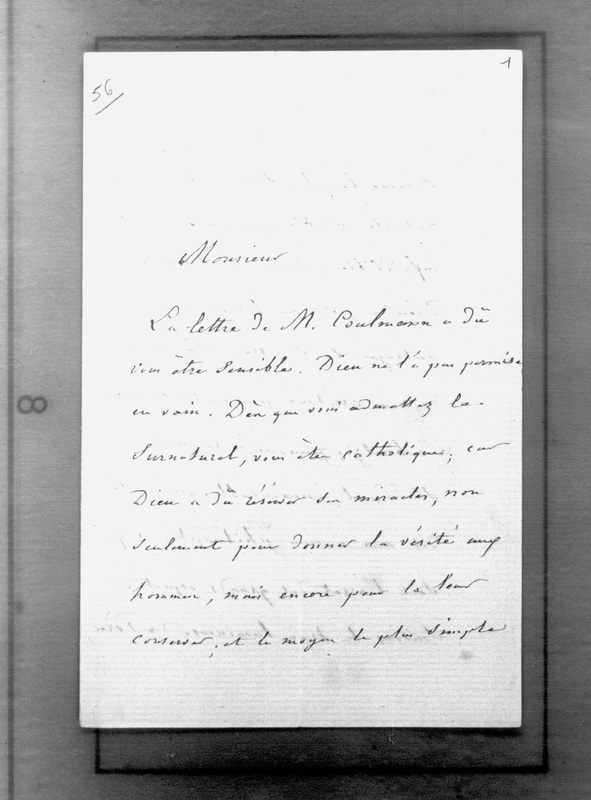 56
1
Monsieur
La lettre de M. Coulmann a dû
vous être sensible. Dieu ne l'a pas permise
en vain. Dès que vous admettez le
Surnaturel, vous êtes catholique; car
Dieu a dû réserver ses miracles, non
seulement pour donner la vérité aux
hommes, mais encore pour la leur
conserver, et le moyen le plus simple
8